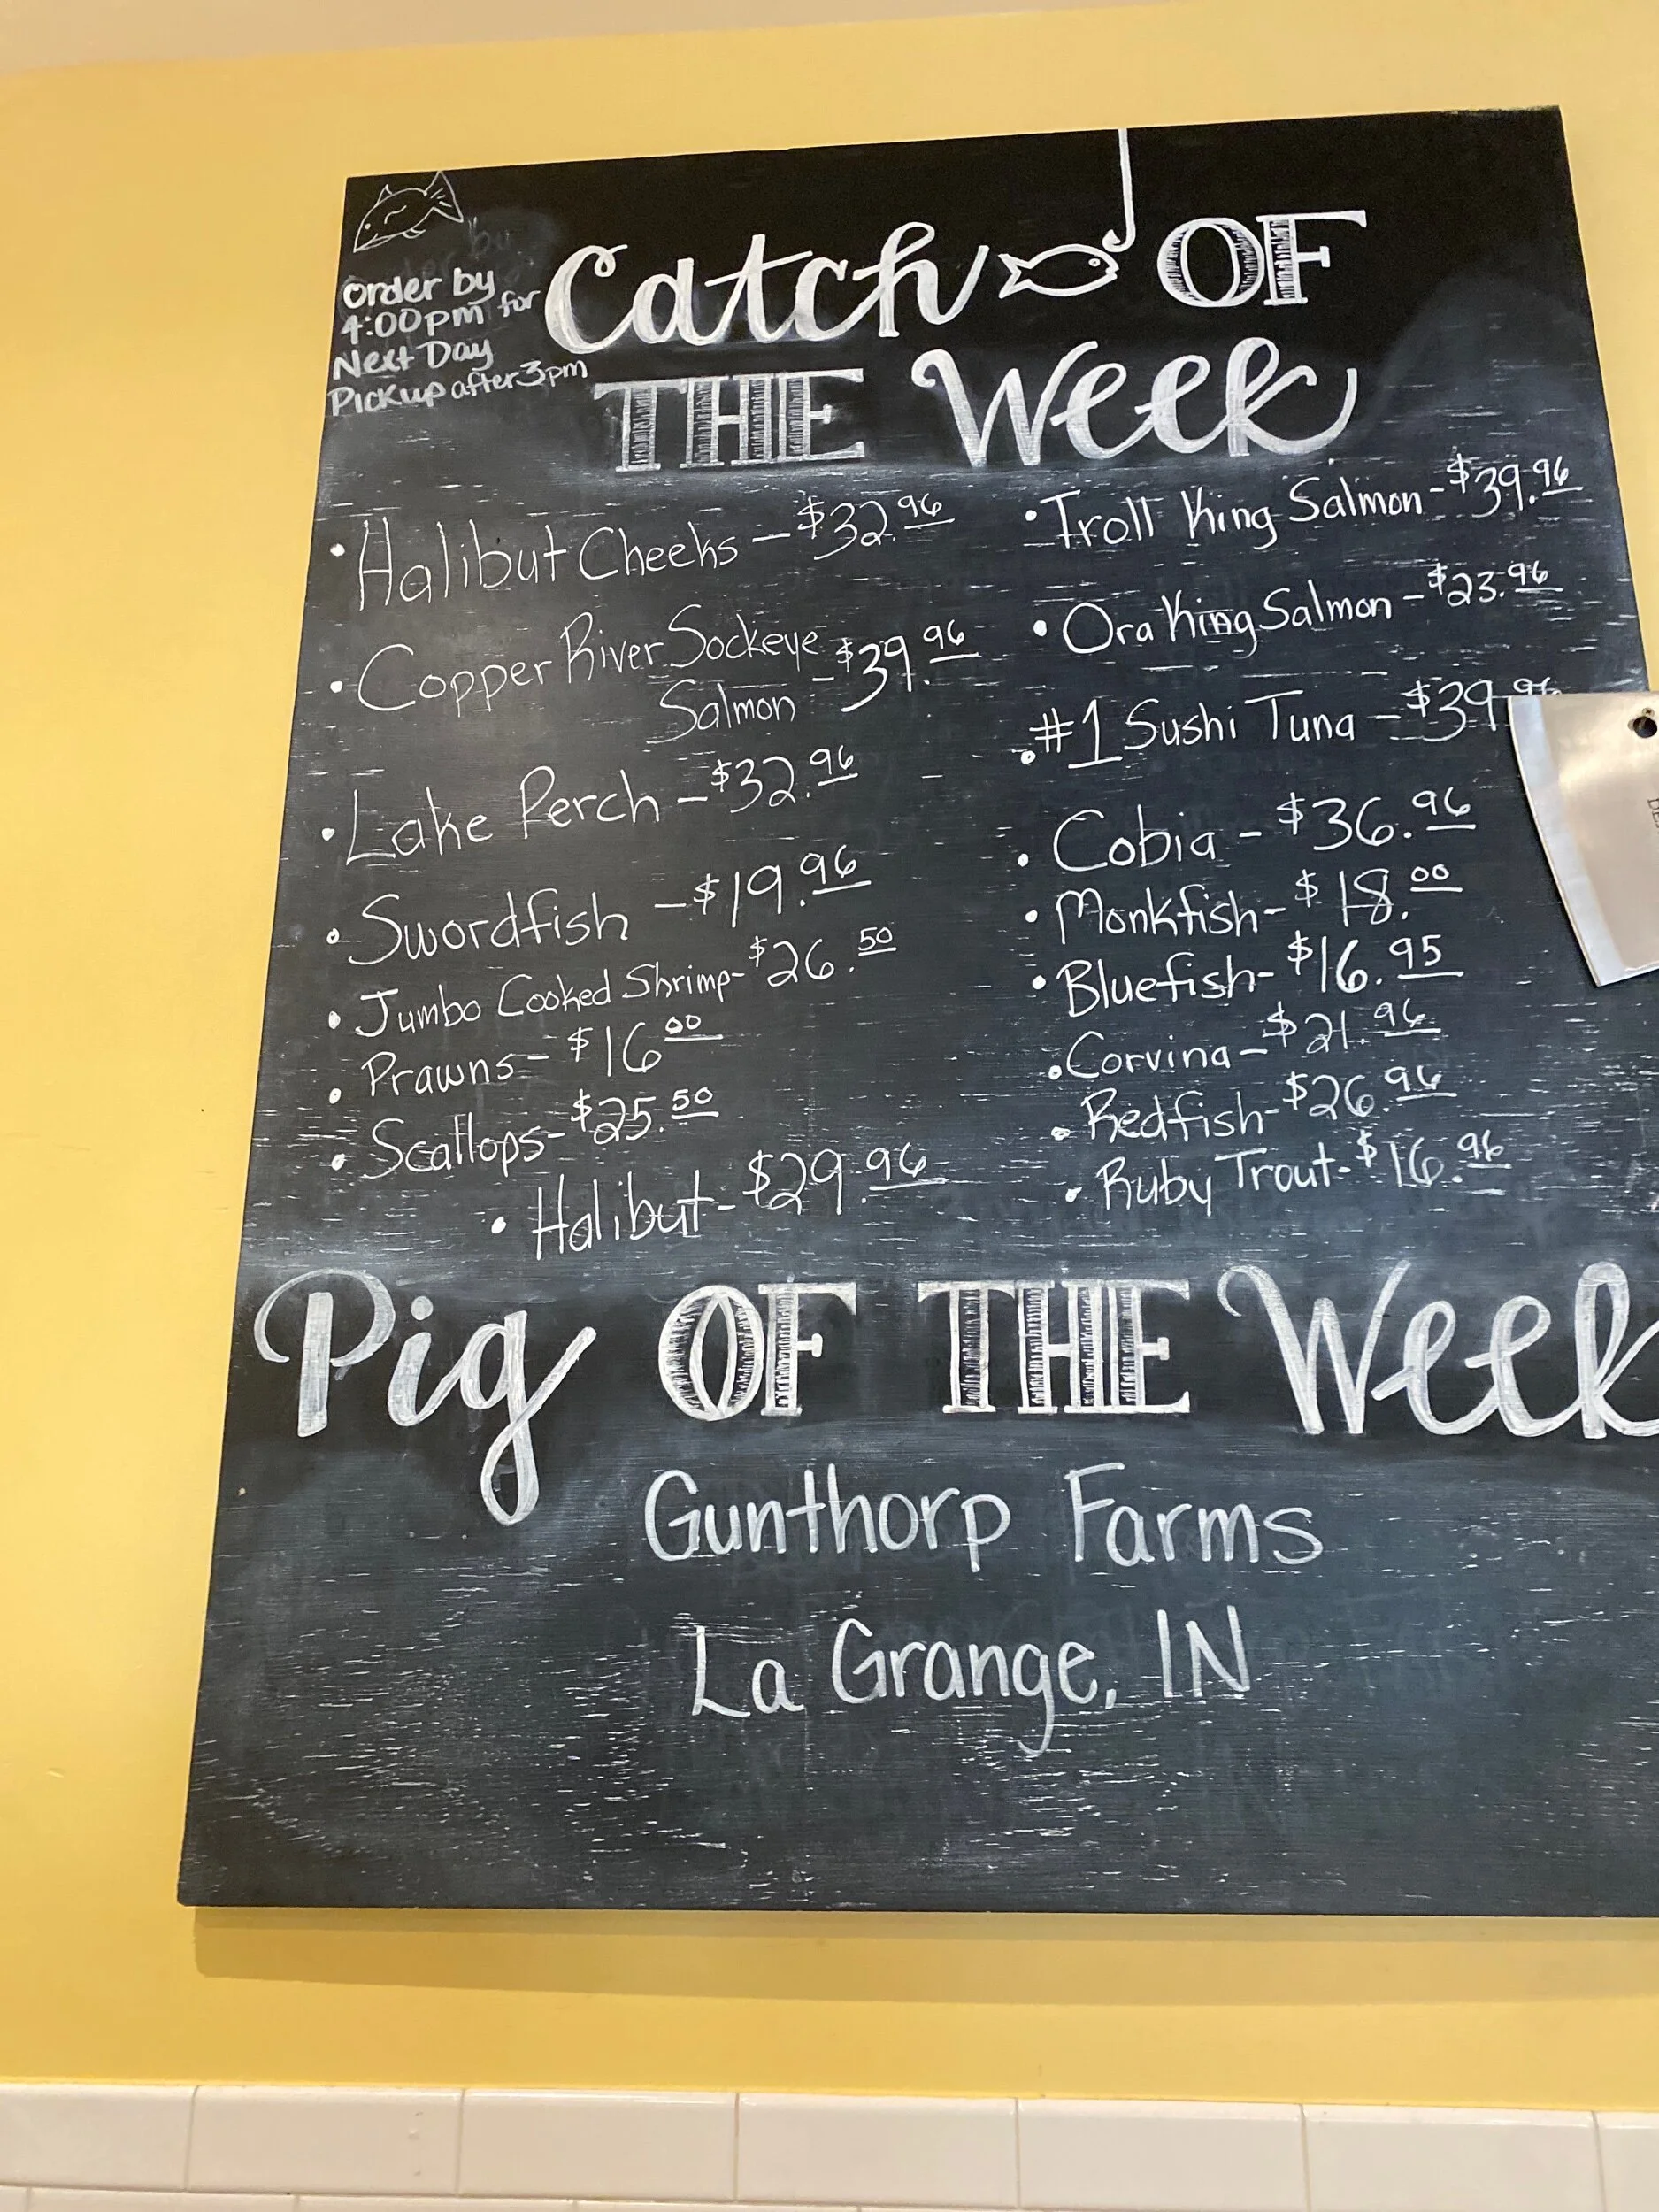 Order by
4:00pm for
Next Day
Pickup after 3pm
Catch OF
THE Week
• Halibut Cheeks - $32.96
• Copper River Sockeye
Salmon - $39.96
• Lake Perch - $32.96
• Swordfish - $19.96
• Jumbo Cooked Shrimp - $26.50
• Prawns - $16.00
• Scallops - $25.50
• Halibut - $29.96
• Troll King Salmon - $39.96
• Ora King Salmon - $23.96
• #1 Sushi Tuna - $39.96
• Cobia - $36.96
• Monkfish - $18.00
• Bluefish - $16.95
• Corvina - $21.96
• Redfish - $26.96
• Ruby Trout - $16.96
Pig OF THE Week
Gunthorp Farms
La Grange, IN